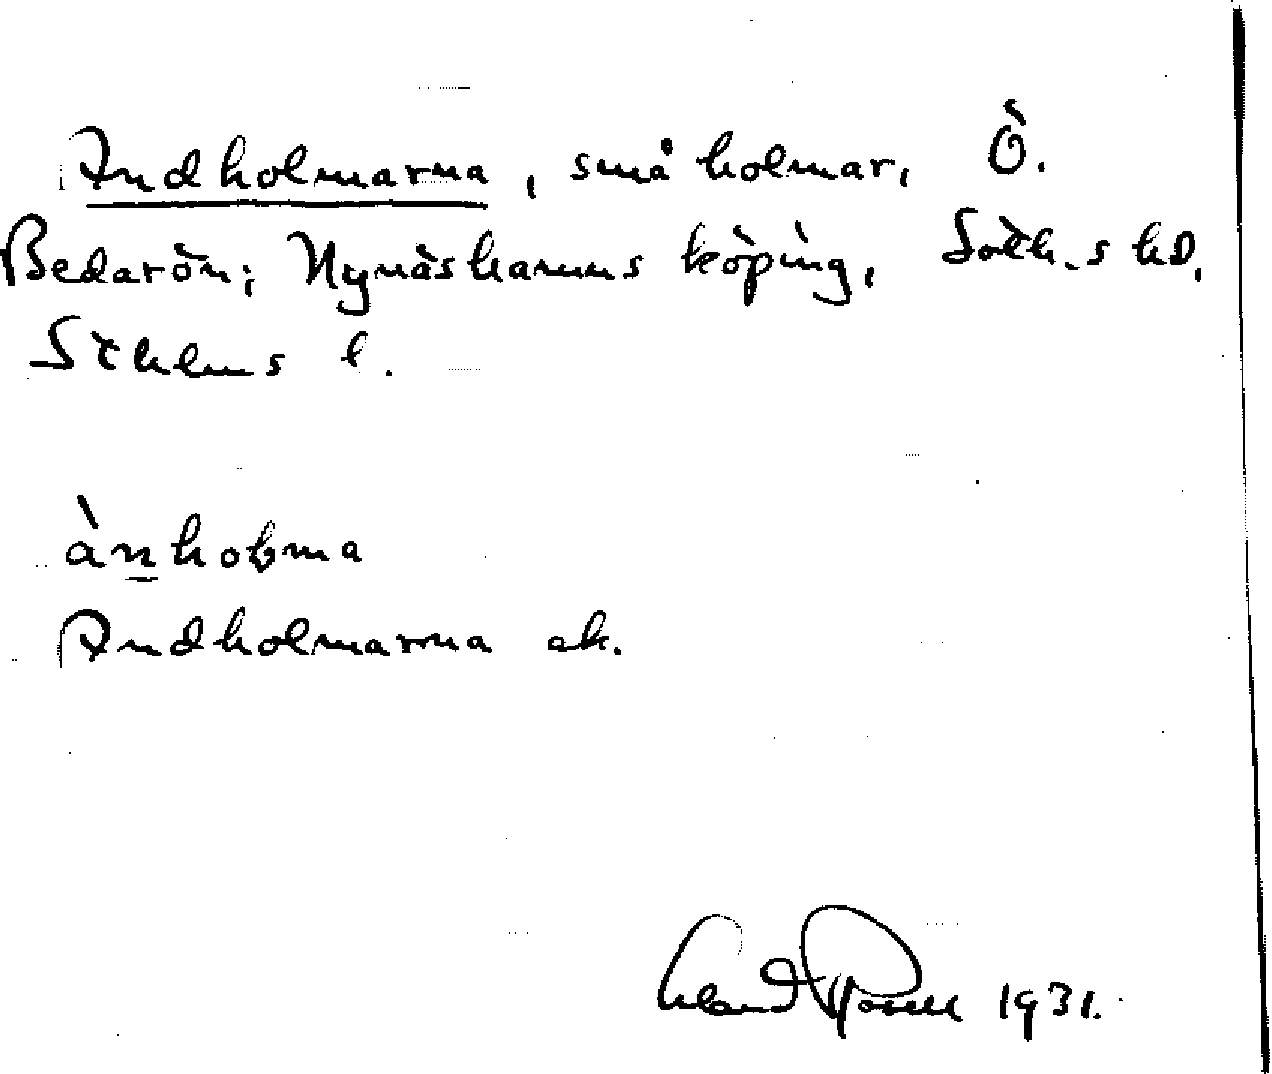 Andholmarna, små holmar, Ö.
Bedarön; Nynäshamns köping, Soth.s hd,
Sthlms l.
ànholma
Andholmarna ek.
Erland Rosell 1931.